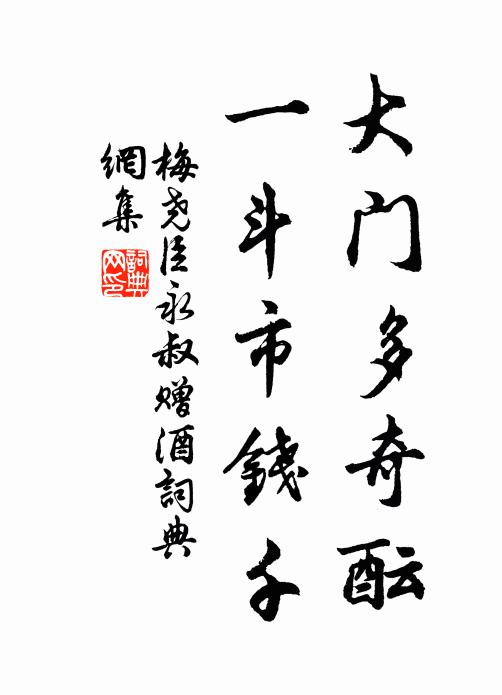 大门多奇酝
一斗市錢千
梅尧臣永叔赠酒詞典
網集
詞典网印